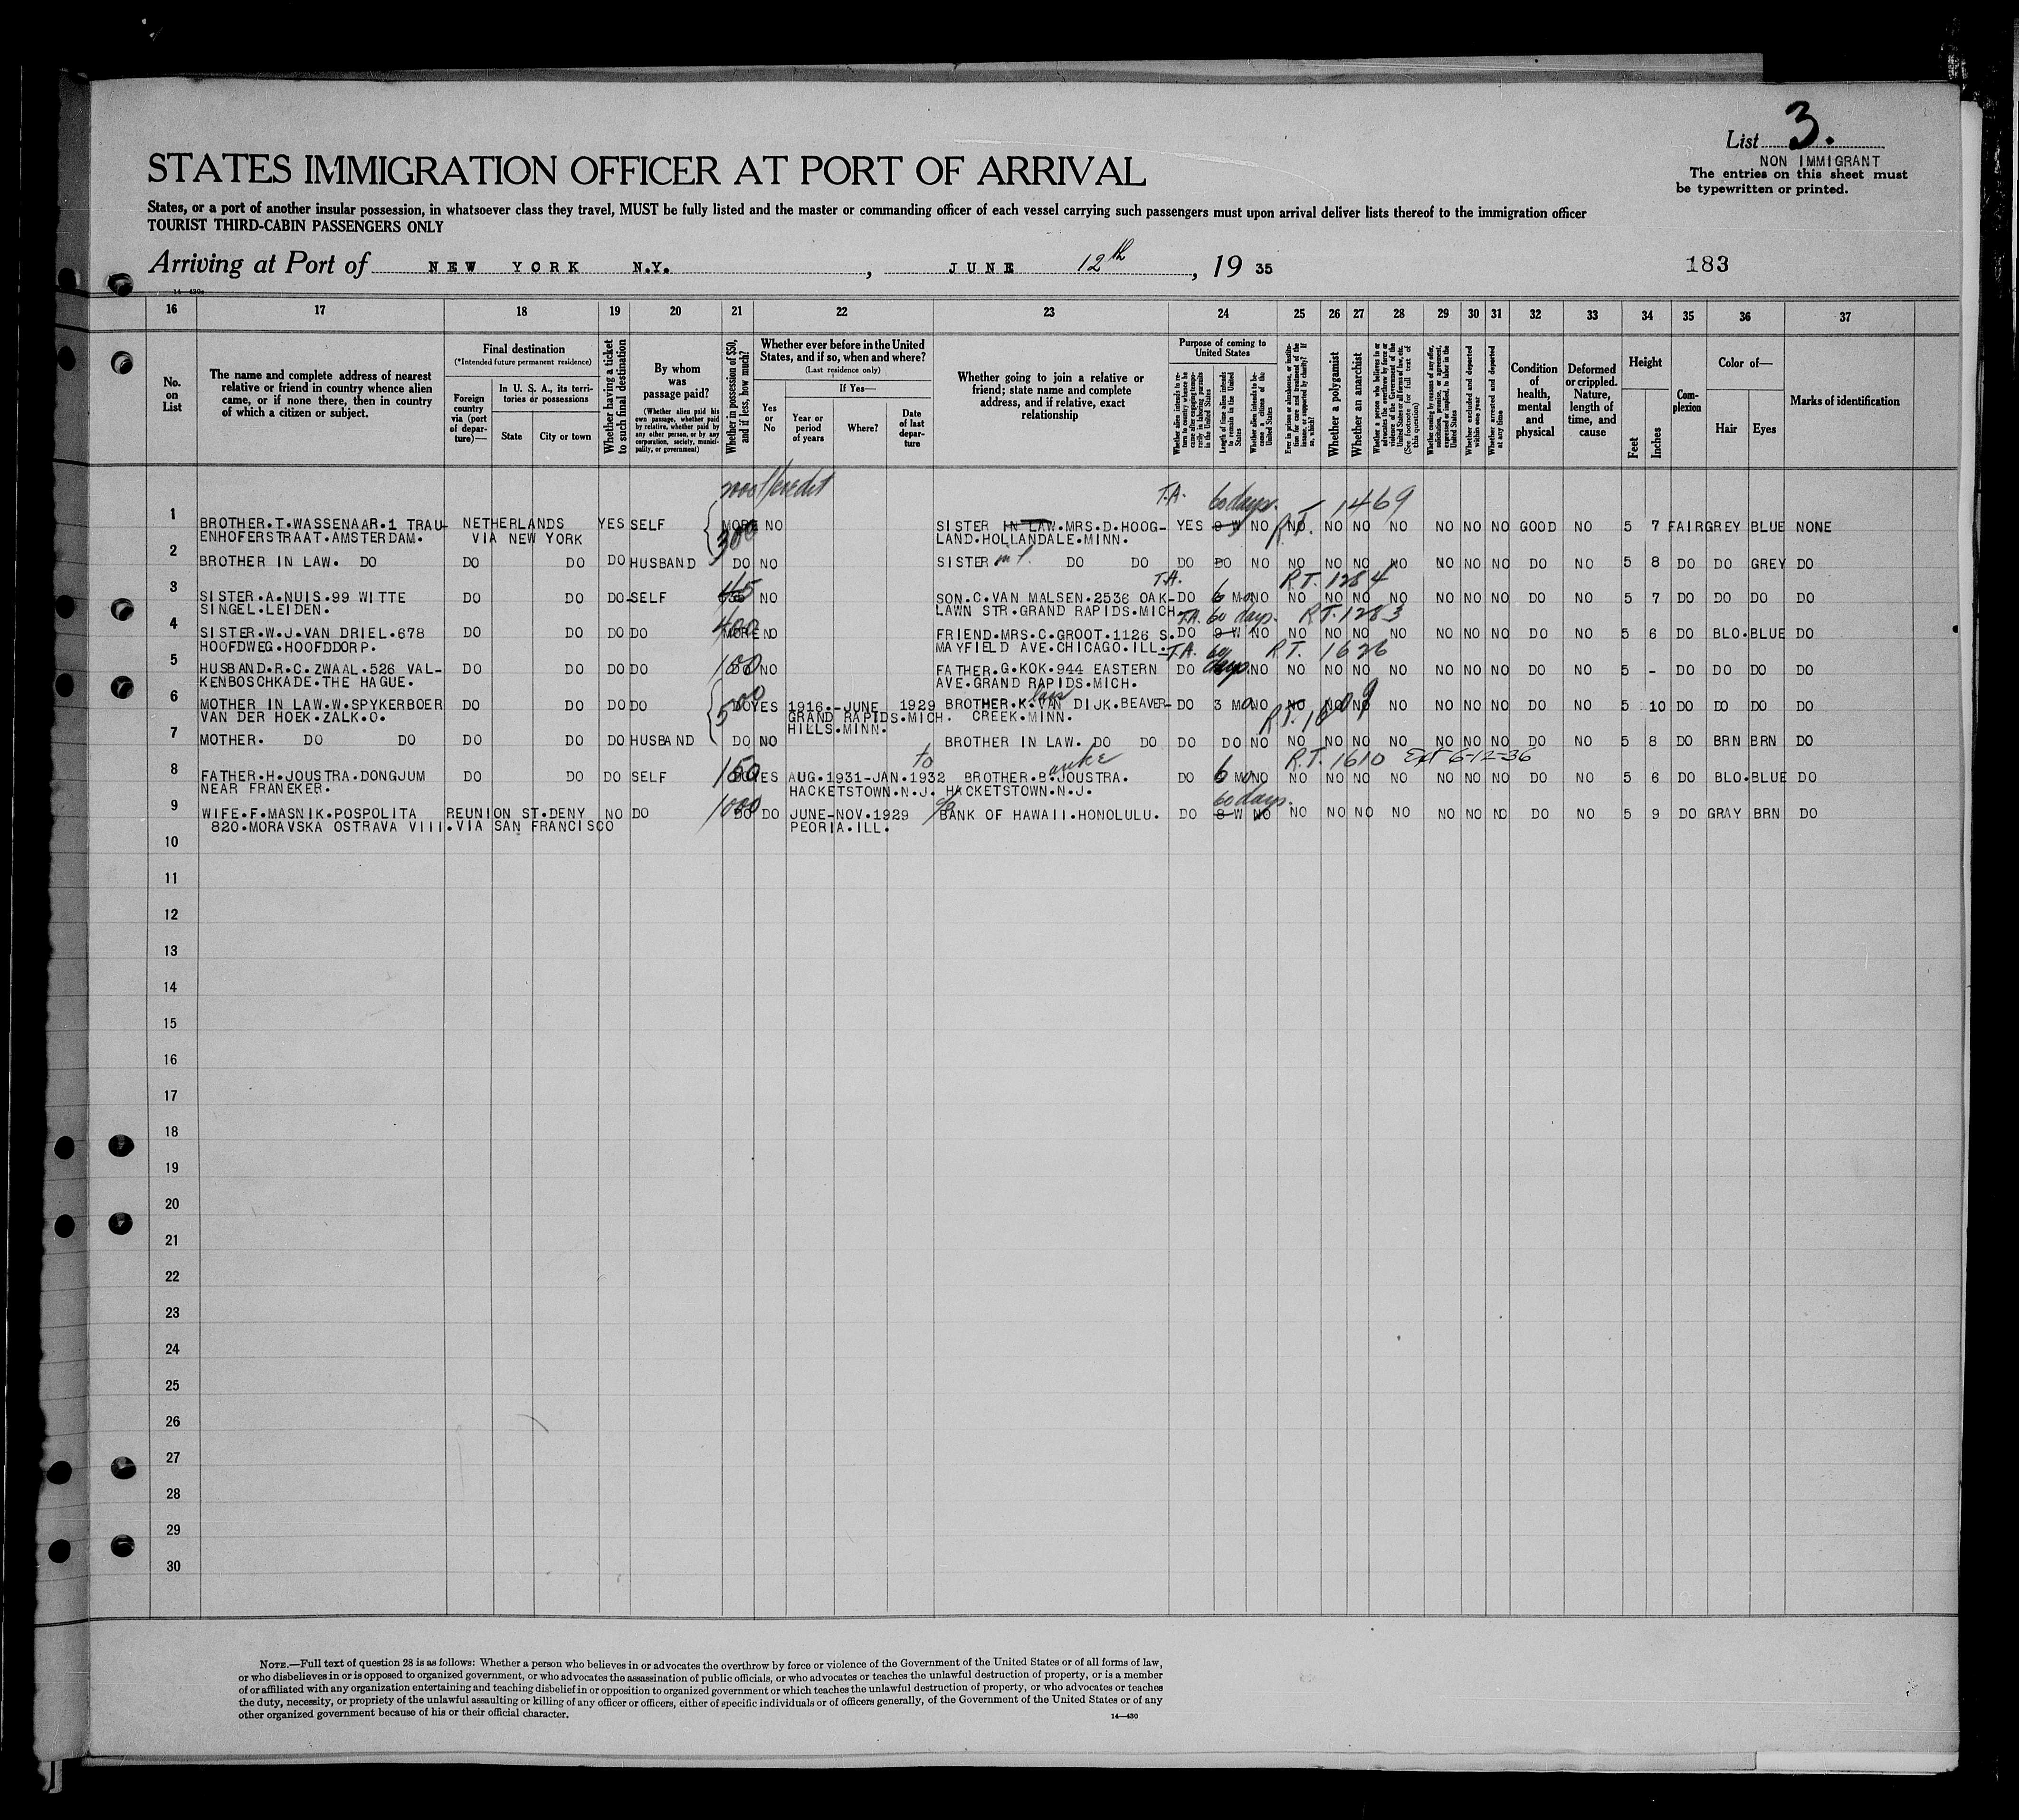 List 3.
NON IMMIGRANT
The entries on this sheet must
be typewritten or printed.
STATES IMMIGRATION OFFICER AT PORT OF ARRIVAL
States, or a port of another insular possession, in whatsoever class they travel, MUST be fully listed and the master or commanding officer of each vessel carrying such passengers must upon arrival deliver lists thereof to the immigration officer
TOURIST THIRD-CABIN PASSENGERS ONLY
Arriving at Port of NEW YORK N.Y. , JUNE 12th , 19 35
183
16 17 18 19 20 21 22 23 24 25 26 27 28 29 30 31 32 33 34 35 36 37
No. on List
The name and complete address of nearest
relative or friend in country whence alien
came, or if none there, then in country
of which a citizen or subject.
Final destination
(*Intended future permanent residence)
Foreign country via (port of departure)—
In U. S. A., its territories or possessions
State
City or town
Whether having a ticket to such final destination
By whom was passage paid?
(Whether alien paid his own passage, whether paid by relative, whether paid by any other person, or by any corporation, society, municipality, or government)
Whether in possession of $50, and if less, how much?
Whether ever before in the United States, and if so, when and where?
(Last residence only)
Yes or No
If Yes—
Year or period of years
Where?
Date of last departure
Whether going to join a relative or
friend; state name and complete
address, and if relative, exact
relationship
Purpose of coming to United States
Whether alien intends to return to country whence he came after engaging temporarily in laboring pursuits in the United States
Length of time alien intends to remain in the United States
Whether alien intends to become a citizen of the United States
Whether a polygamist
Whether an anarchist
Whether excluded and deported within one year
Whether arrested and deported at any time
Condition of health, mental and physical
Deformed or crippled. Nature, length of time, and cause
Height
Feet
Inches
Complexion
Color of—
Hair
Eyes
Marks of identification
T.A. 60 days. R.T. 1469
1 BROTHER.T.WASSENAAR.1 TRAU- NETHERLANDS YES SELF MORE 300 NO SISTER IN LAW.MRS.D.HOOG- YES 9 W NO NO NO NO NO NO NO NO GOOD NO 5 7 FAIR GREY BLUE NONE
ENHOFERSTRAAT.AMSTERDAM. VIA NEW YORK LAND.HOLLANDALE.MINN.
2 BROTHER IN LAW. DO DO DO DO HUSBAND DO NO SISTER DO DO DO DO NO NO NO NO NO NO NO NO DO NO 5 8 DO DO GREY DO
T.A. R.T. 1284
3 SISTER.A.NUIS.99 WITTE DO DO DO SELF NO SON.C.VAN MALSEN.2536 OAK- DO 6 MO NO NO NO NO NO NO NO NO DO NO 5 7 DO DO DO DO
SINGEL.LEIDEN. LAWN STR.GRAND RAPIDS.MICH.
T.A. 60 days. R.T. 1283
4 SISTER.W.J.VAN DRIEL.678 DO DO DO DO MORE 400 NO FRIEND.MRS.C.GROOT.1126 S. DO 9 W NO NO NO NO NO NO NO NO DO NO 5 6 DO BLO. BLUE DO
HOOFDWEG.HOOFDDORP. MAYFIELD AVE.CHICAGO.ILL.
T.A. 60 days R.T. 1626
5 HUSBAND.R.C.ZWAAL.526 VAL- DO DO DO DO 100 NO FATHER.G.KOK.944 EASTERN DO NO NO NO NO NO NO NO NO DO NO 5 - DO DO DO DO
KENBOSCHKADE.THE HAGUE. AVE.GRAND RAPIDS.MICH.
R.T. 1609
6 MOTHER IN LAW.W.SPYKERBOER DO DO DO DO DO 500 YES 1916.-JUNE 1929 BROTHER.K.VAN DIJK.BEAVER- DO 3 MO NO NO NO NO NO NO NO NO DO NO 5 10 DO DO DO DO
VAN DER HOEK.ZALK.O. GRAND RAPIDS.MICH. CREEK.MINN.
HILLS.MINN.
7 MOTHER. DO DO DO DO DO HUSBAND DO NO BROTHER IN LAW. DO DO DO DO NO NO NO NO NO NO NO NO DO NO 5 8 DO BRN BRN DO
to R.T. 1610 Ext 6-12-36
8 FATHER.H.JOUSTRA.DONGJUM DO DO DO SELF 150 YES AUG.1931-JAN.1932 BROTHER.B.JOUSTRA. DO 6 MO NO NO NO NO NO NO NO NO DO NO 5 6 DO BLO. BLUE DO
NEAR FRANEKER. HACKETSTOWN.N.J. HACKETSTOWN.N.J.
60 days.
9 WIFE.F.MASNIK.POSPOLITA REUNION ST.DENY NO DO DO 1000 DO JUNE-NOV.1929 c/o BANK OF HAWAII.HONOLULU. DO 8 W NO NO NO NO NO NO NO NO DO NO 5 9 DO GRAY BRN DO
820.MORAVSKA OSTRAVA VIII. VIA SAN FRANCISCO PEORIA.ILL.
10
11
12
13
14
15
16
17
18
19
20
21
22
23
24
25
26
27
28
29
30
NOTE.—Full text of question 28 is as follows: Whether a person who believes in or advocates the overthrow by force or violence of the Government of the United States or of all forms of law,
or who disbelieves in or is opposed to organized government, or who advocates the assassination of public officials, or who advocates or teaches the unlawful destruction of property, or is a member
of or affiliated with any organization entertaining and teaching disbelief in or opposition to organized government or which teaches the unlawful destruction of property, or who advocates or teaches
the duty, necessity, or propriety of the unlawful assaulting or killing of any officer or officers, either of specific individuals or of officers generally, of the Government of the United States or of any
other organized government because of his or their official character.
14—430